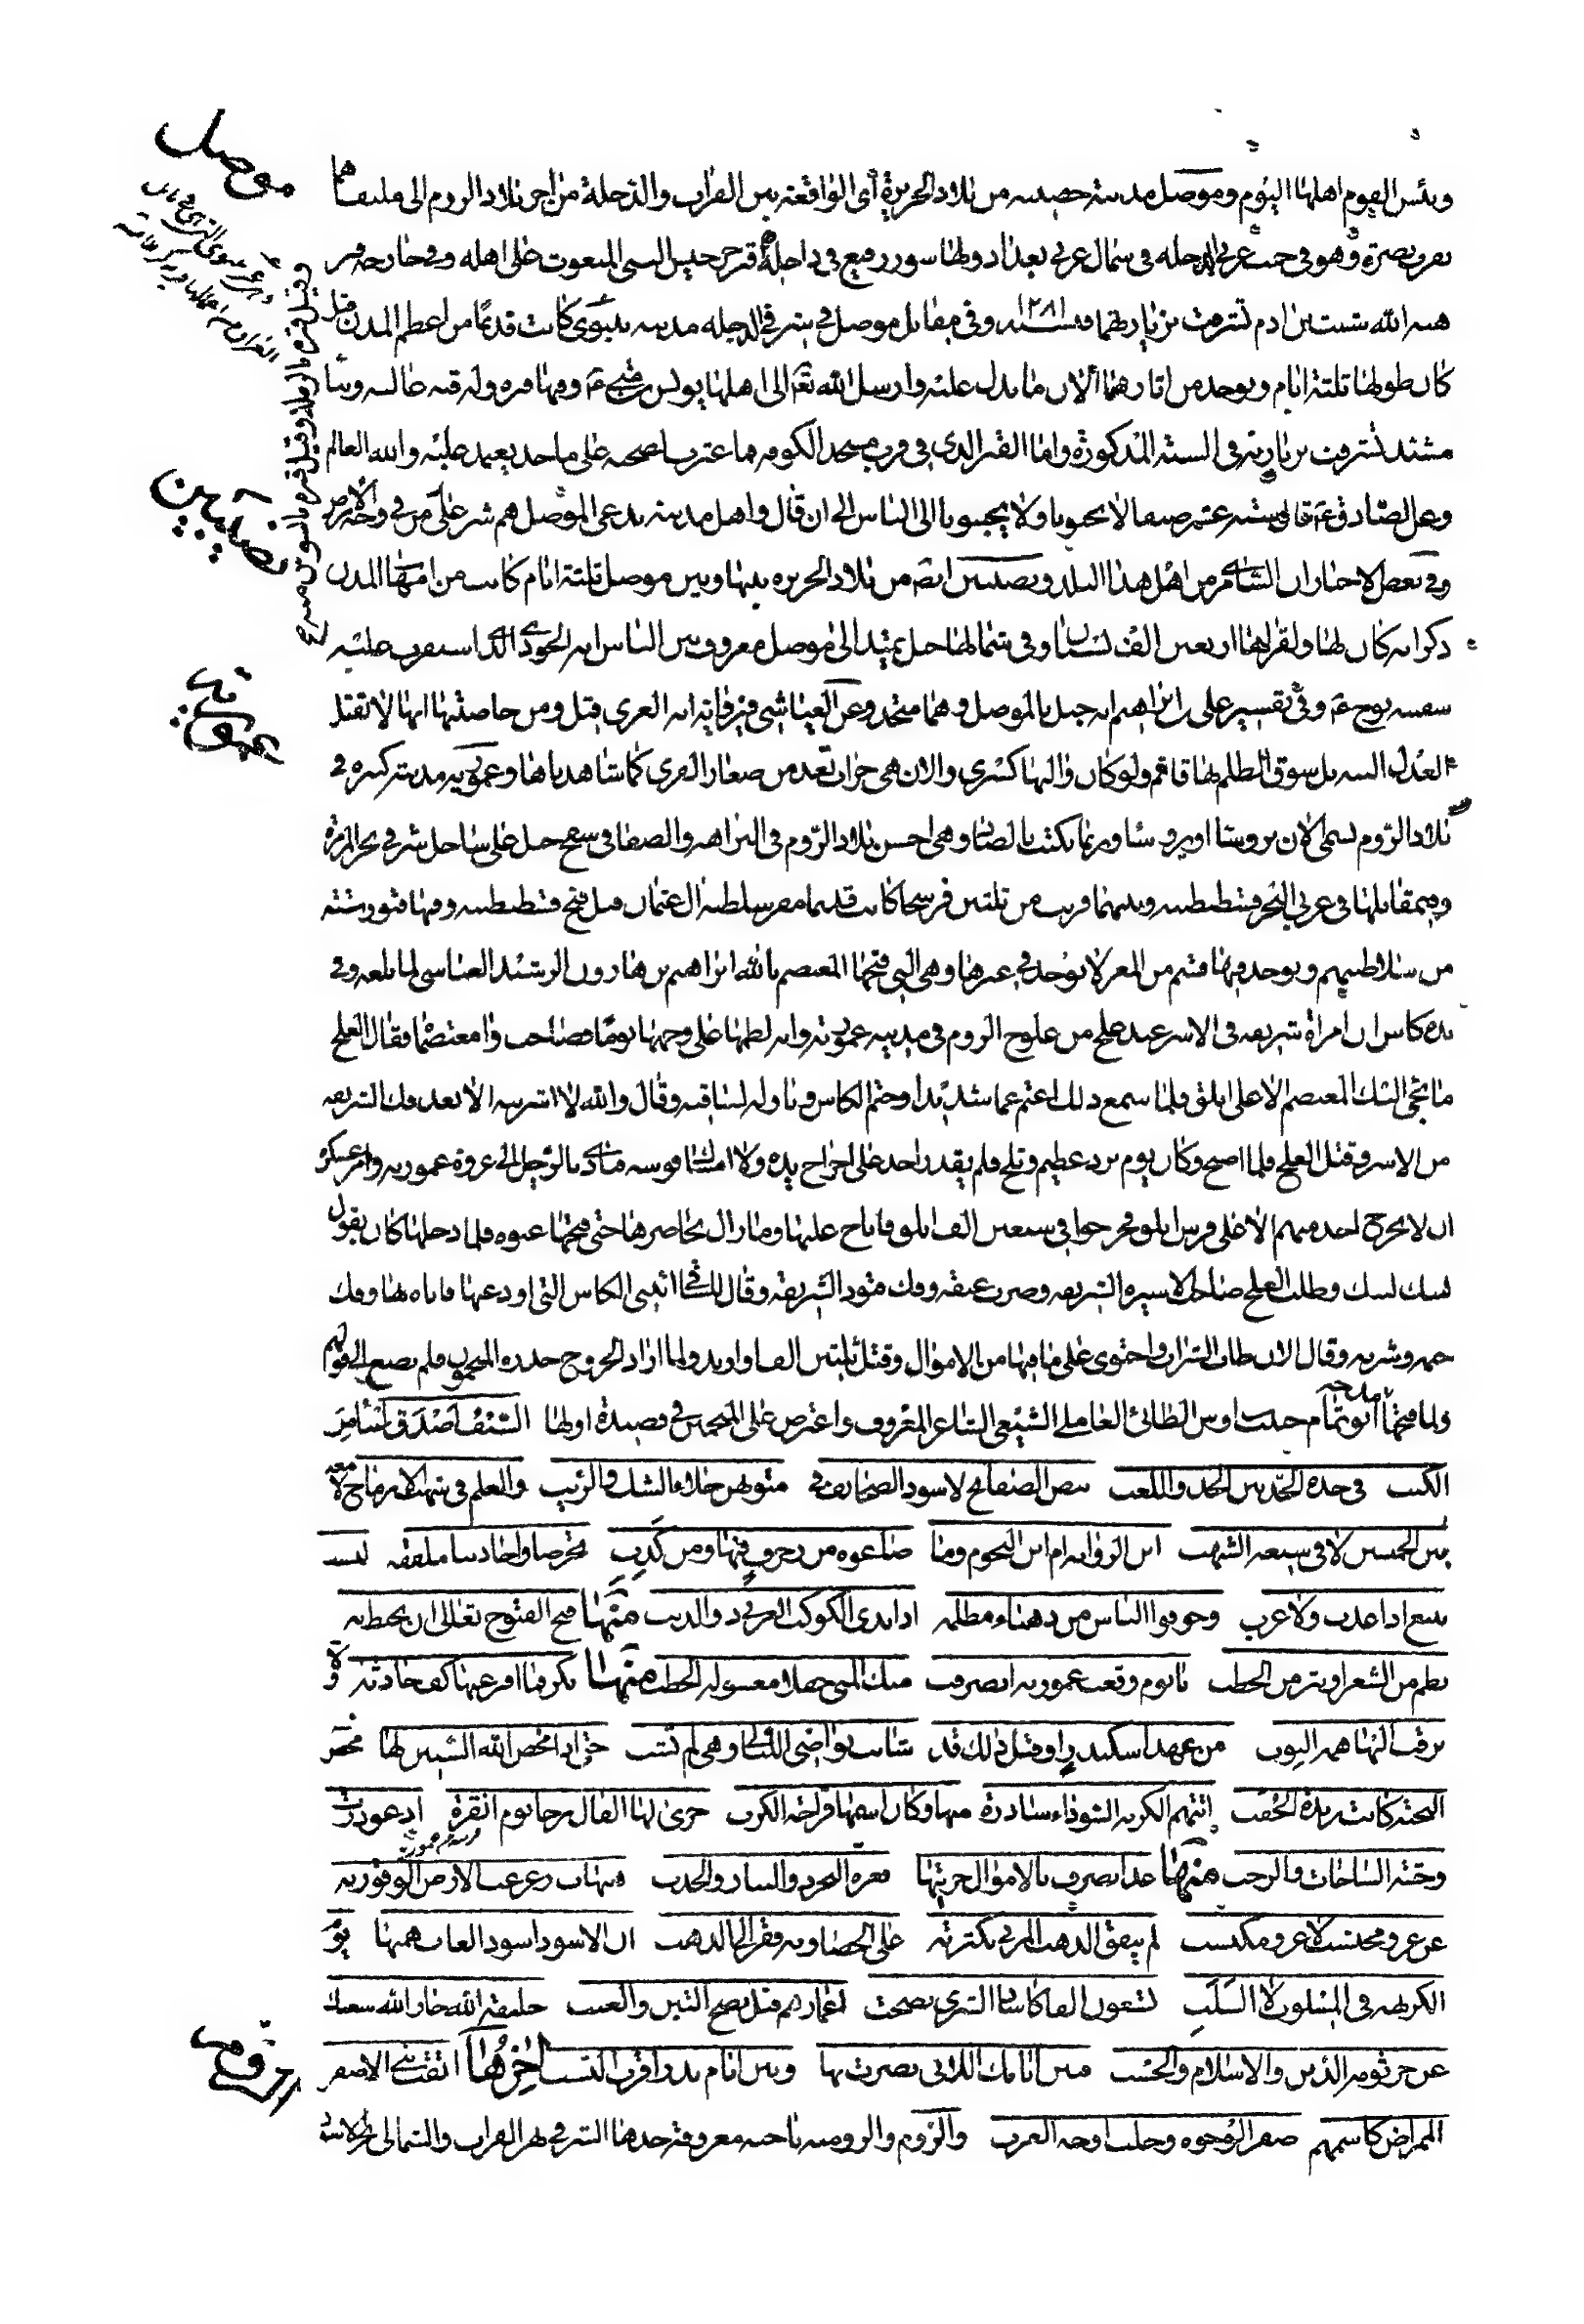 وبئس القوم اهلها اليوم وموصل مدينة حصينه من بلاد الجزيرة أى الواقعة بين الفرات والدجلة من اجزء بلاد الروم الى ملتقاهما
بقرب بصرة وهو فى جنب غربى الدجله فى شمال غربى بغداد ولها سور رفيع فى داخله قبر جرجيس النبى المبعوث على اهله وفى خارجه قبر
هبه الله شيث بن ادم تشرفت بزيارتهما فى سنه ١٢٨١ وفى مقابل موصل فى شرقى الدجله مدينه نينوى كانت قديمًا من اعظم المدن قيل
كان طولها ثلثة ايام ويوجد من اثارهما الان ما يدل عليه وارسل الله تعالى الى اهلها يونس بن متى ع وفيها قبره وله قبه عاليه وبناء
مشيد تشرفت بزيارته فى السنة المذكورة واما القبر الذى فى قرب مسجد الكوفه فما عثرنا بصحته على ما خذ يعتمد عليه والله العالم
وعن الصادق ع قال ستة عشر صنفا لا يحبونا ولا يحببونا الى الناس الى ان قال واهل مدينه تدعى الموصل هم شر على من فى وجه الارض
وفى بعض الاخبار ان الشامر من اهل هذا البلد ونصيبين ايضا من بلاد الجزيره بينها وبين موصل ثلثة ايام كانت من امهات المدن
ذكر انه كان لها ولقراها اربعين الف بستان وفى شمالها جبل يمتد الى موصل معروف بين الناس انه الجودى الذى استقرت عليه
سفينه نوح ع وفى تفسير على بن ابراهيم انه جبل بالموصل وهما متحد وعن العياشى فى رواية انه الغرى قيل ومن خاصيتها انها لا تقبل
العدل البته بل سوق الظلم لها قائم ولو كان واليها كسرى والان هى خراب تعد من صغار القرى كما شاهدناها وعموريه مدينة كبيره فى
بلاد الروم تسمى الان بروسا او بروسا وربما يكتب بالصاد وهى احسن بلاد الروم فى النزاهه والصفا فى سفح جبل على ساحل شرقى بحر المرمرة
وبمقابلها فى غربى البحر قسطنطنيه وبينهما قريب من ثلثين فرسخا كانت قديما مقر سلطنه ال عثمان قبل فتح قسطنطنيه وفيها قبور ستة
من سلاطينهم ويوجد فيها قسم من المعز لا يوجد فى غيرها وهى التى فتحها المعتصم بالله ابراهيم بن هارون الرشيد العباسى لما بلغه وفى
يده كاس ان امراة شريفه فى الاسر عند علج من علوج الروم فى مدينه عموريه وانه لطمها على وجهها يومًا فصاحت وامعتصما فقال العلج
ما يجئ اليك المعتصم الا على ابلق فلما سمع ذلك اغتم غما شديدا وختم الكاس وناوله لساقيه وقال والله لا اشربه الا بعد فك الشريفه
من الاسر وقتل العلج فلما اصبح وكان يوم برد عظيم وثلج فلم يقدر احد على اخراج يده ولا امساك قوسه فنادى بالرحيل الى غزوة عموريه وامر عسكره
ان لا يخرج احد منهم الا على فرس ابلق فخرجوا فى سبعين الف ابلق فاناخ عليها وما زال يحاصرها حتى فتحها عنوه فلما دخلها كان يقول
لبيك لبيك وطلب العلج صاحب الاسيره الشريفه وضرب عنقه وفك قيود الشريفه وقال للساقى ائتنى الكاس التى اودعها فاتاه بها وفك
ختمه وشربه وقال الان طاب الشراب واحتوى على ما فيها من الاموال وقتل ثلثين الفا واويد ولما اراد الخروج حذره المنجمون فلم يصغ الى قولهم
ولما فتحها مدحه ابو تمام حبيب اوس الطائى العاملى الشيعى الشاعر المعروف واعترض على المنجمين فى قصيدة اولها السَّيْفُ اَصْدَقُ انباء مِنَ
الكتب فى حده الحد بين الجد واللعب بيض الصفايح لا سود الصحايف فى متونهن جلاء الشك والريب والعلم فى شهب الارماح لامعه
بين الخميسين لا فى سبعه الشهب اين الروايه ام اين النجوم وما صاغوه من زخرف فيها ومن كَذِبِ تخرصا واحاديثا ملفقه ليست
بنبع اذا عدت ولا غرب وخوفوا الناس من دهياء مظلمه اذا بدى الكوكب الغربى ذو الذنب مِنْها فتح الفتوح تعالى ان يحيط به
نظم من الشعر او نثر من الخطب يا يوم وقعت عموريه انصرفت منك المنى حفلا معسوله الحلب منها بكر فما افترعها كف حادثة ولا
ترقت اليها همه النوب من عهد اسكندر او قبل ذلك قد شابت نواصى الليالى وهى لم تشب حتى اذا مخض الله السنين لها مخض
البخيله كانت زبدة الحقب اتتهم الكربه السوداء سادرة منها وكان اسمها فراجه الكرب جرى لها الفال برحا يوم انقرة اذ غودرت
وحشة الساحات والرحب مِنْها غدا يصرف بالاموال جريتها فعزه البحر ذو التيار والحدب
عن غزو محتسب لا غزو مكتسب لم ينفق الذهب المربى بكثرته على الحصا وبه فقر الى الذهب ان الاسود اسود الغاب همتها يوم
الكريهه فى المسلوب لا السَّلَبِ تسعون الفا كاساد الشرى نضجت اعمارهم قبل نضج التين والعنب خليفة الله جازى الله سعيك
عن جرثومه الدين والاسلام والحسب فبين ايامك اللاتى نصرت بها وبين ايام بدر اقرب النسب اخِرُها ابقت بنى الاصفر
الممراض كاسمهم صفر الوجوه وجلت اوجه العرب والرّوم والروميه ناحيه معروفة حدها الشرقى نهر الفرات والشمالى بحر الاسود
موصل
نصيبين
عموريه
الروم